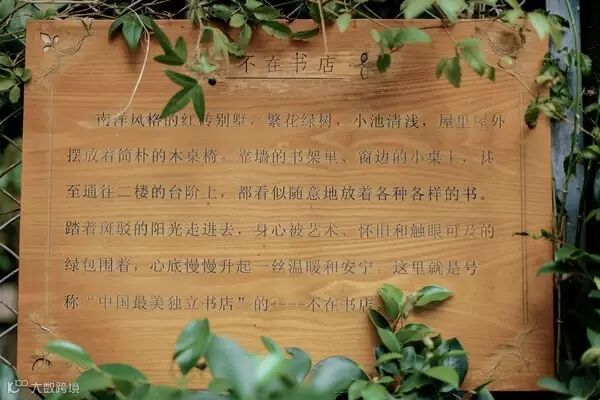 不在书店
南洋风格的红砖别墅、繁花绿树，小池清浅，屋里屋外
摆放着简朴的木桌椅。靠墙的书架里、窗边的小桌上，甚
至通往二楼的台阶上，都看似随意地放着各种各样的书。
踏着斑驳的阳光走进去，身心被艺术、怀旧和触眼可及的
绿包围着，心底慢慢升起一丝温暖和安宁。这里就是号
称“中国最美独立书店”的——不在书店
大数跨境